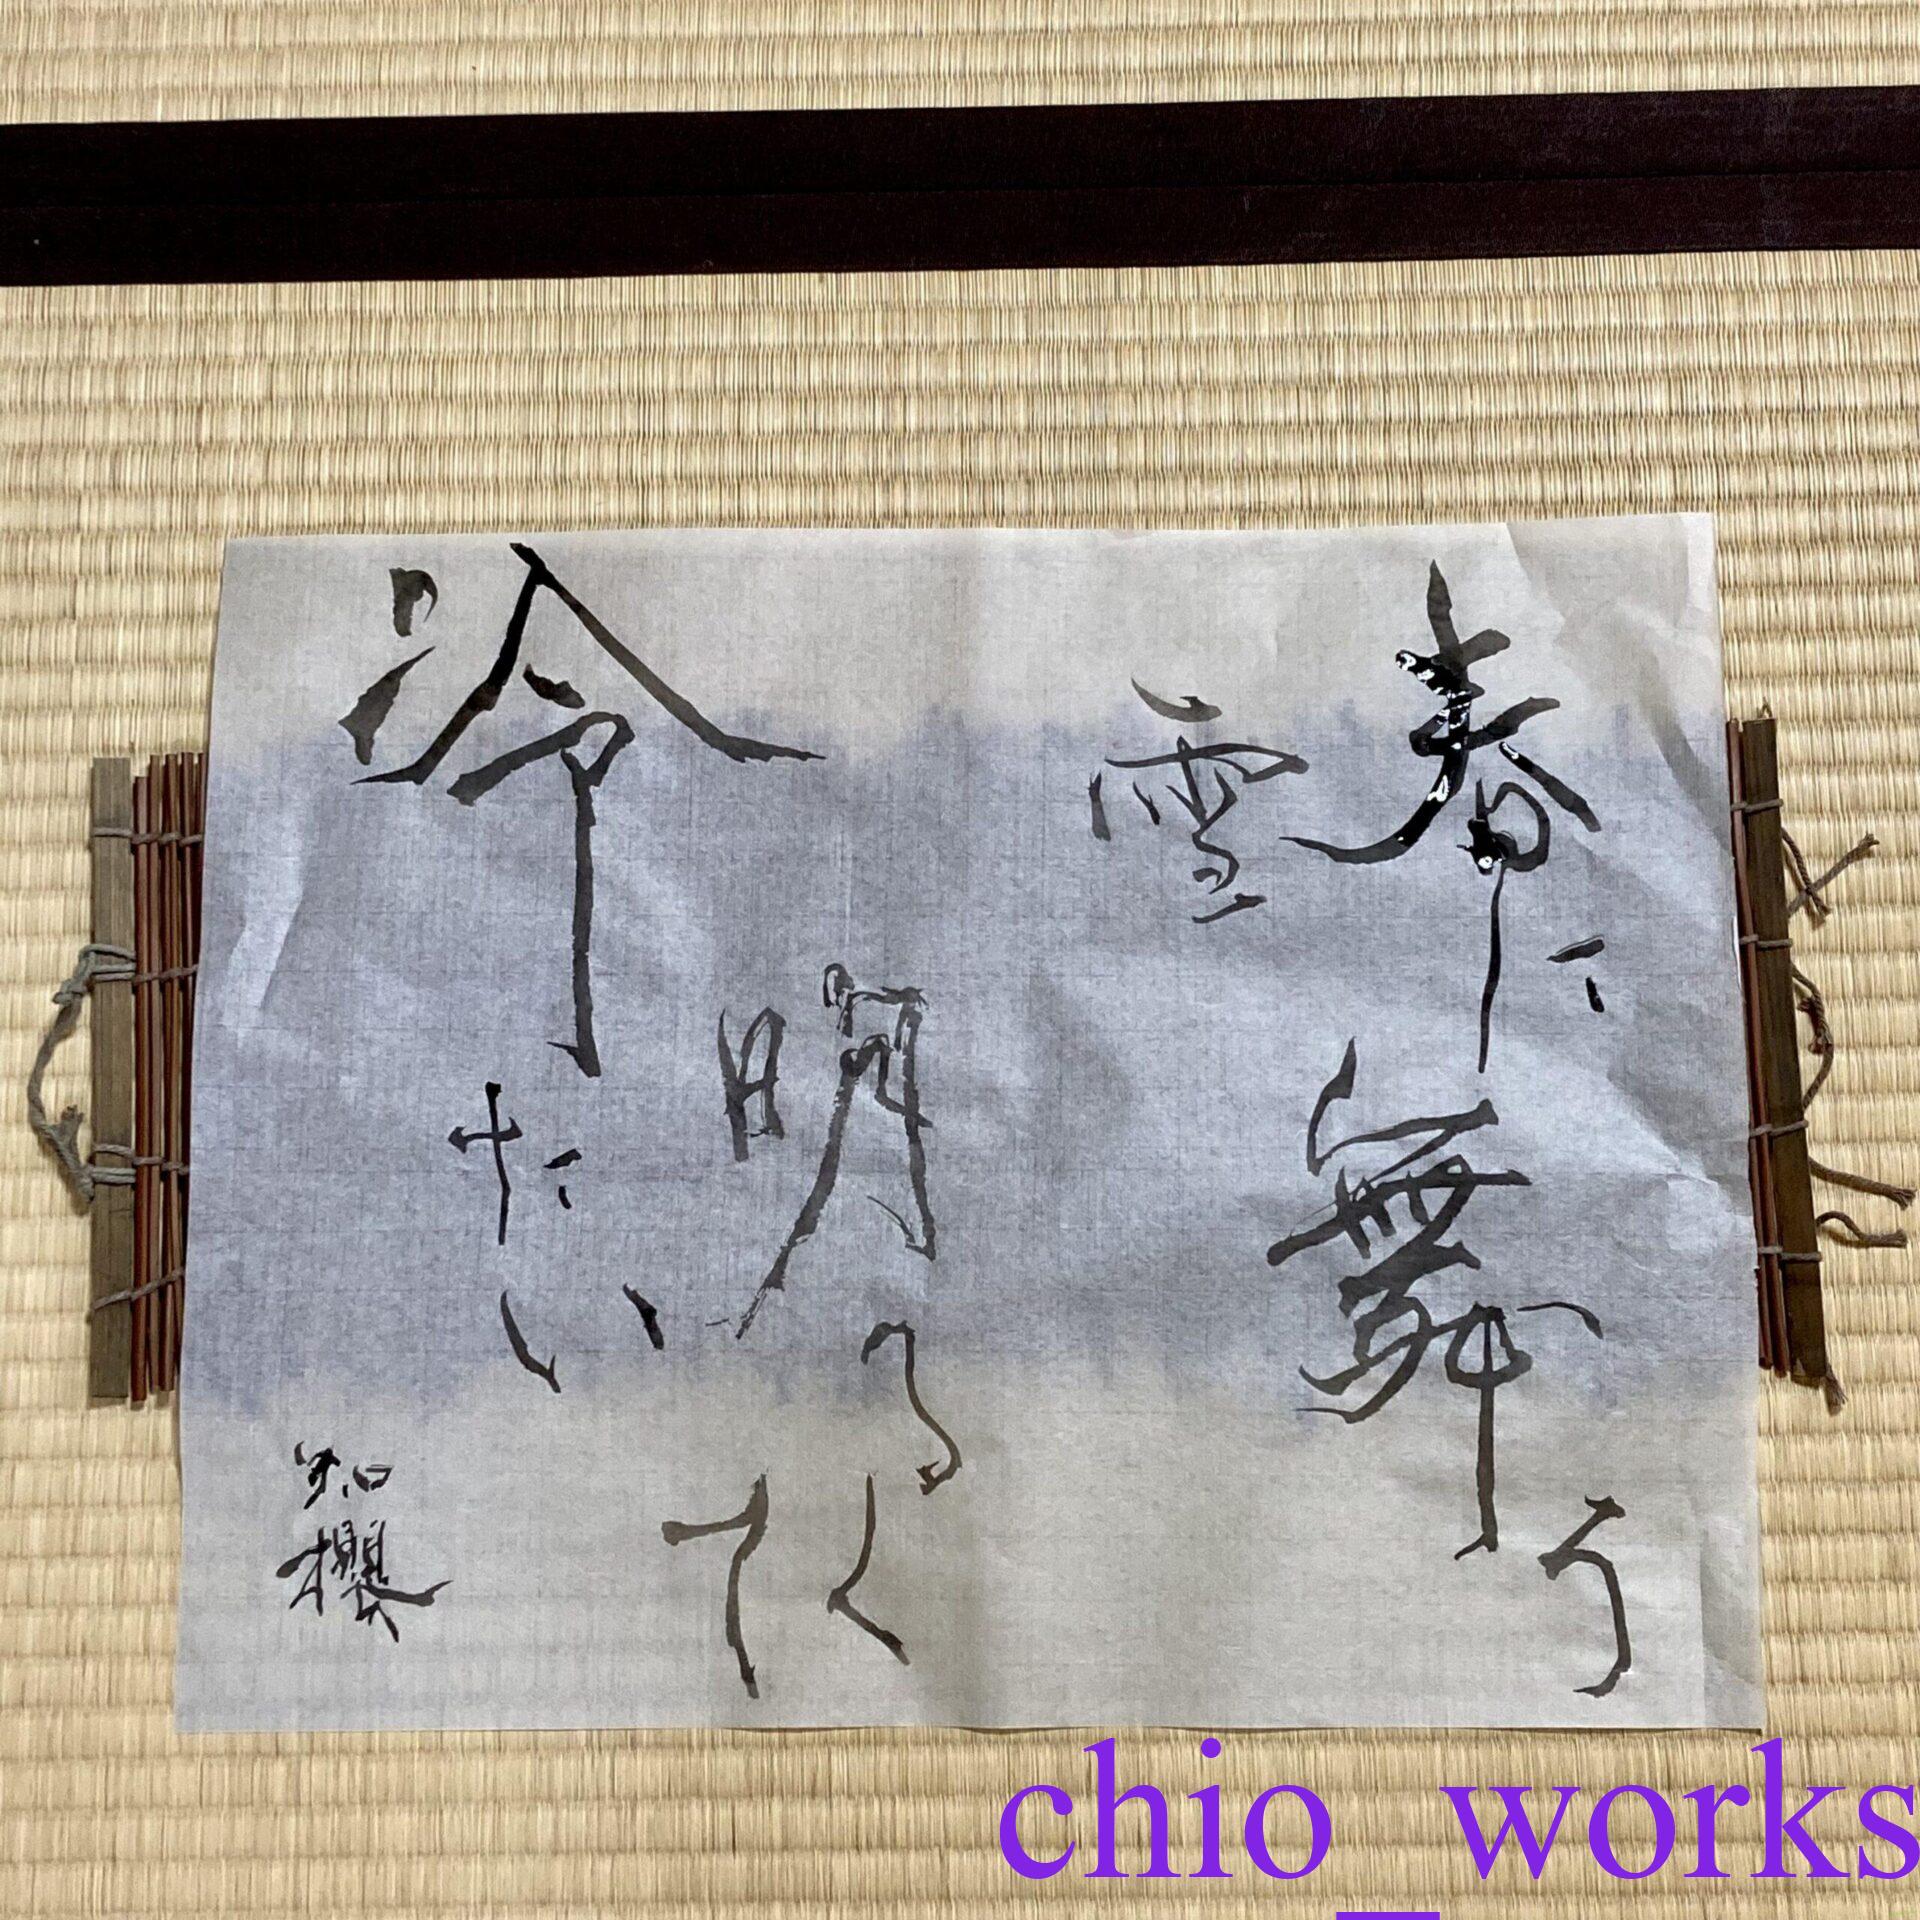 春に舞う
雪
明るく
て
冷たい
知櫻
chio_works